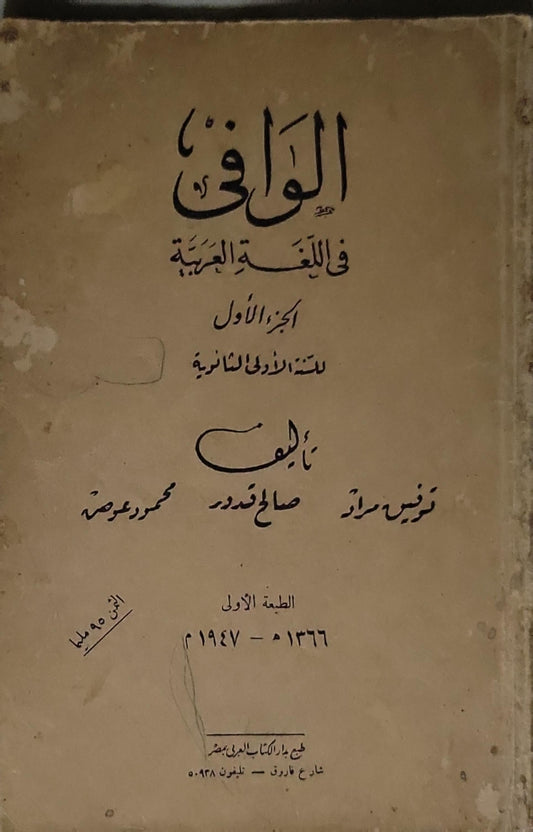 الوَافى
فى اللّغَةِ العَرَبيَّة
الجزء الأول
للسّنة الأولى الثانوية
تأليف
توفيق مراد صالح قدور محمود عوض
الطبعة الأولى
١٣٦٦ ه – ١٩٤٧ م
الثمن ٩٥ مليما
طبع بدار الكتاب العربى بمصر
شارع فاروق — تليفون ٥٠٩٣٨